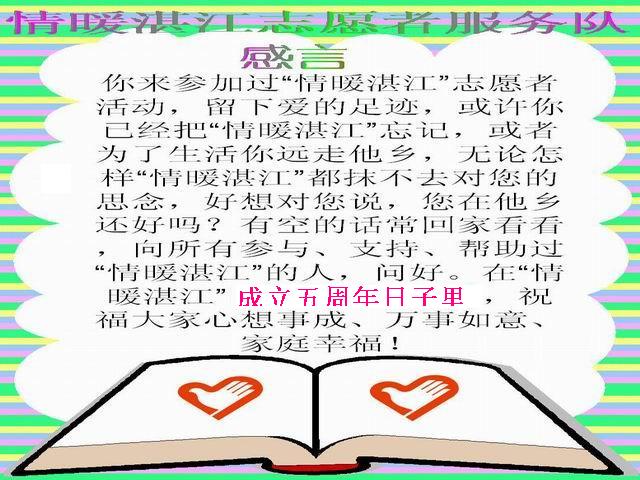 情暖湛江志愿者服务队
感言
你来参加过“情暖湛江”志愿者
活动，留下爱的足迹，或许你
已经把“情暖湛江”忘记，或者
为了生活你远走他乡，无论怎
样“情暖湛江”都抹不去对您的
思念，好想对您说，您在他乡
还好吗？有空的话常回家看看
，向所有参与、支持、帮助过
“情暖湛江”的人，问好。在“情
暖湛江”成立五周年日子里，祝
福大家心想事成、万事如意、
家庭幸福！